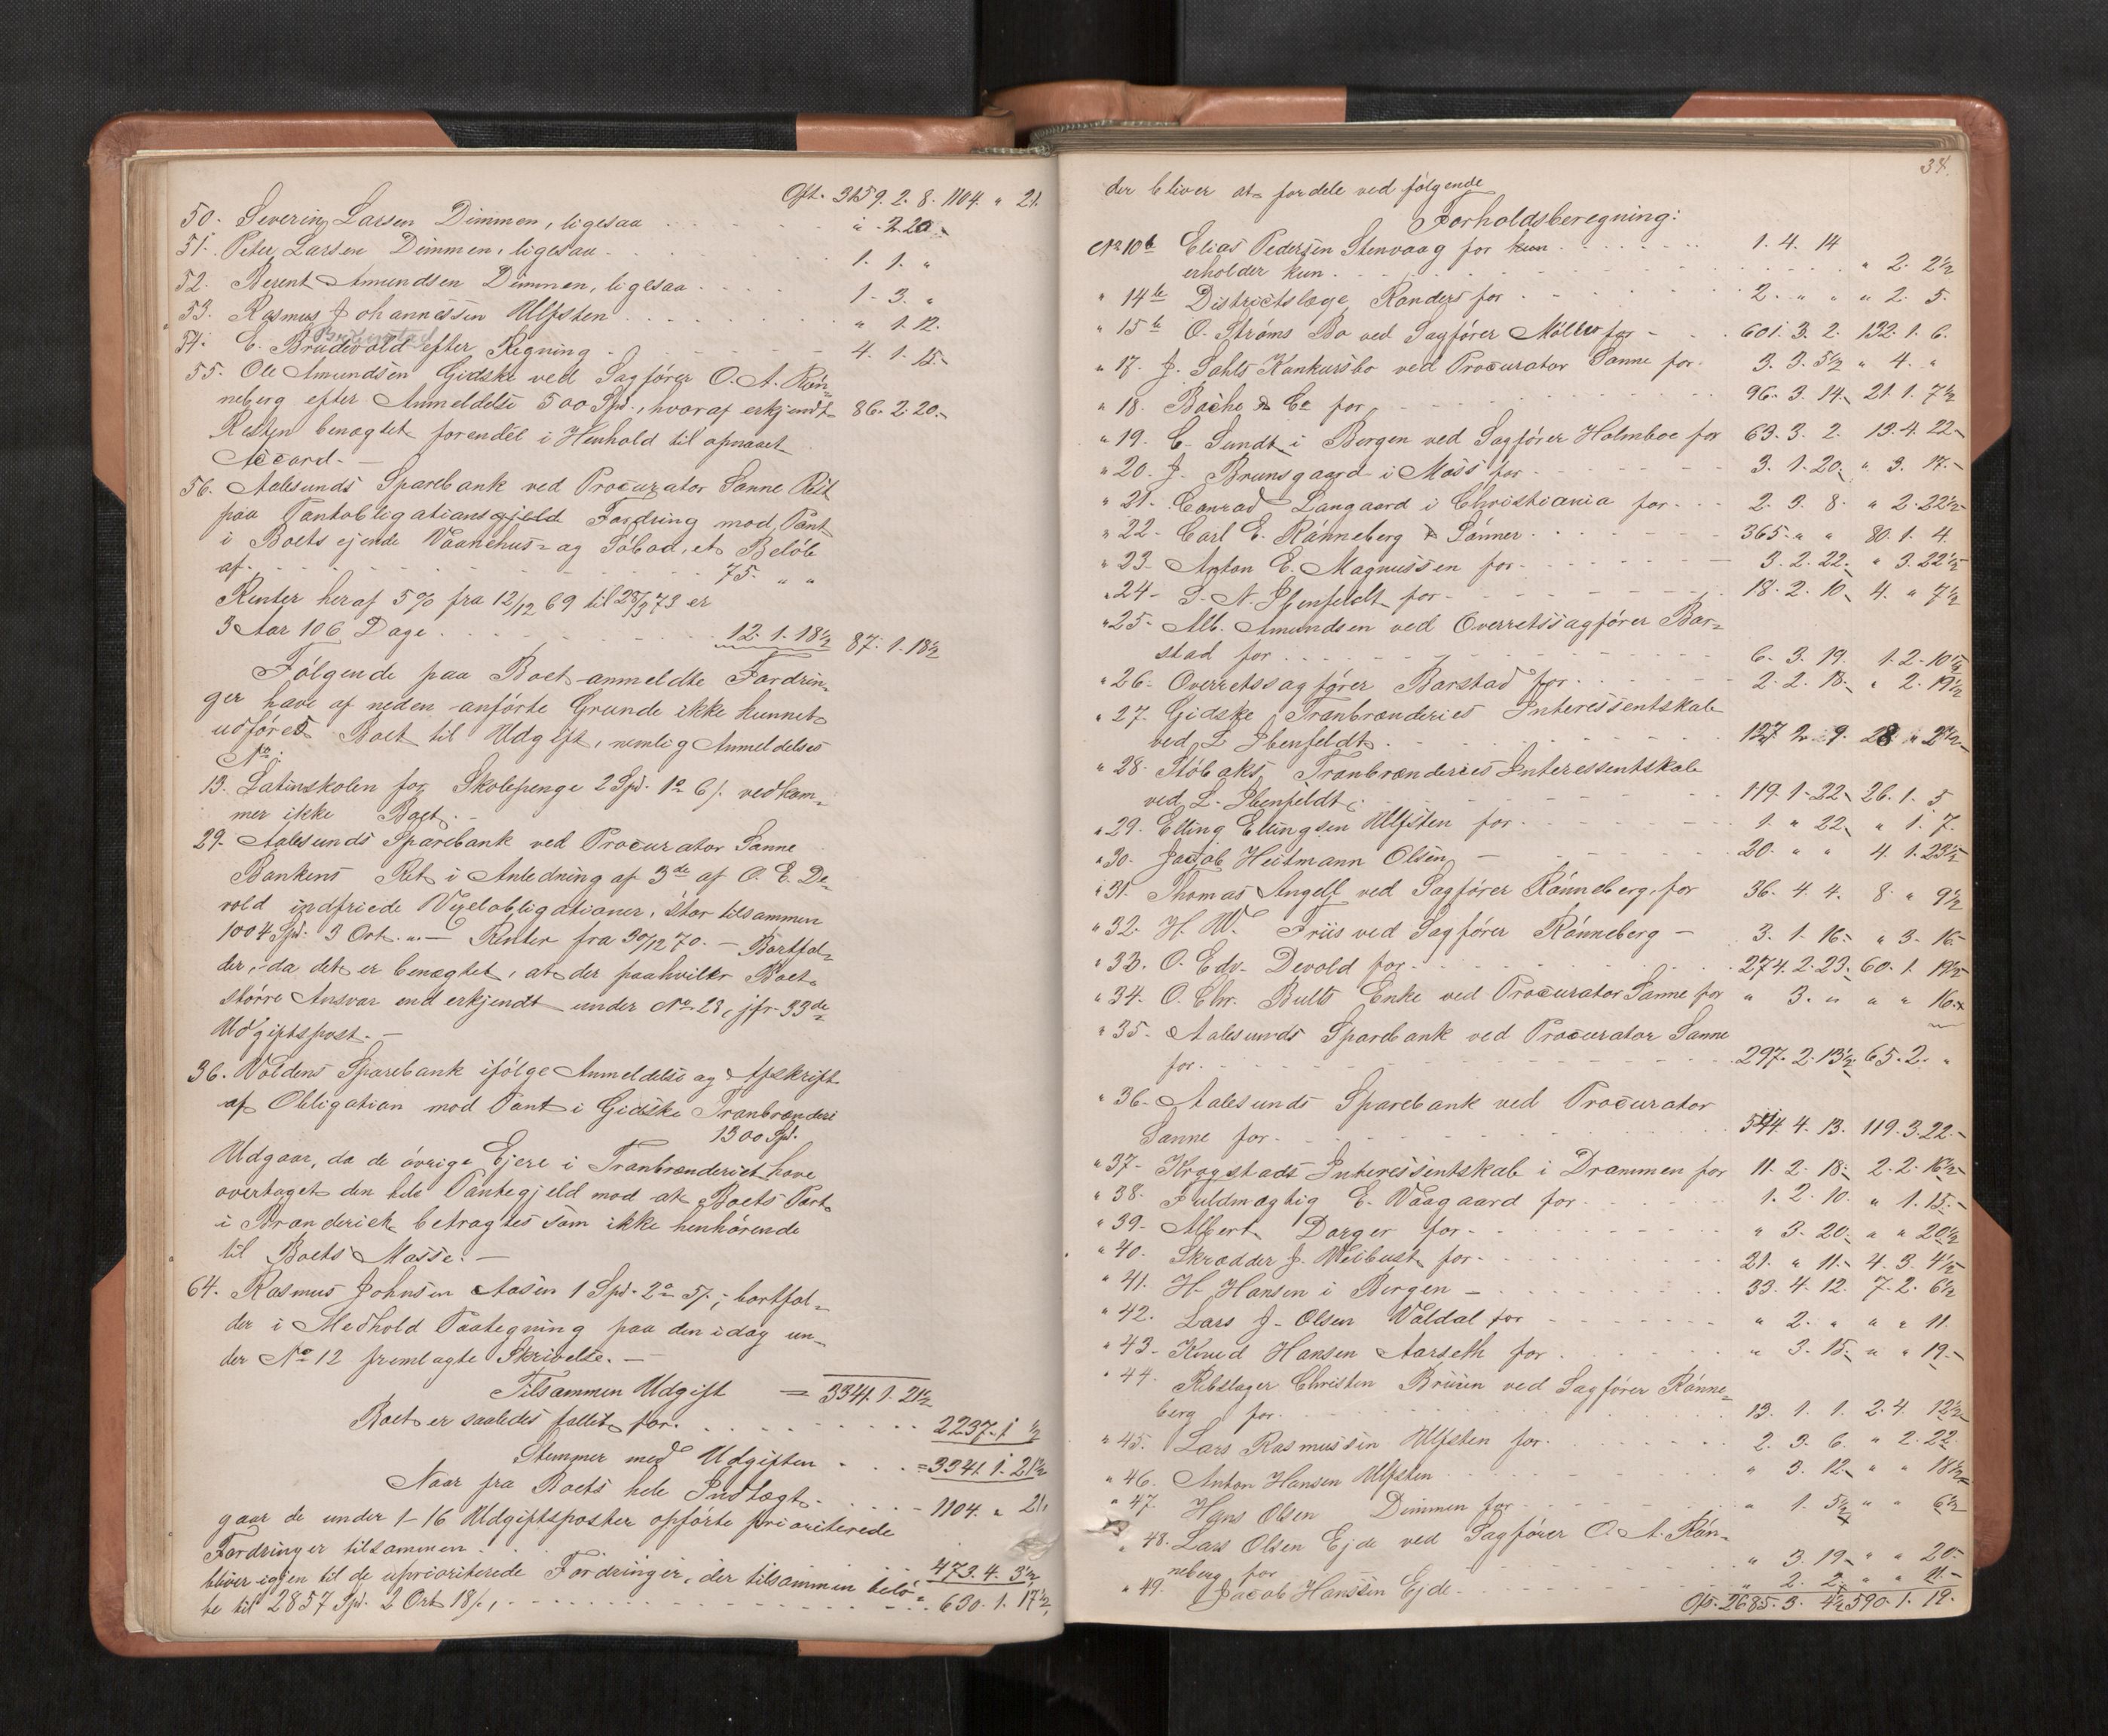 Oft. 3159. 2. 8. 1104. " 21.
50. Severin Larsen Dimmen, ligesaa . . . " 2. 20.
51. Peter Larsen Dimmen, ligesaa . . . 1. 1. "
52. Berent Amundsen Dimmen, ligesaa . . . 1. 3. "
53. Rasmus Johannessen Ulfsten . . . " 1. 12.
54. E. Brudevold efter Regning . . . 4. 1. 15.
55. Ole Amundsen Gidske ved Sagfører O. A. Røn-
neberg efter Anmeldelse 500 Spd., hvoraf erkjendt 86. 2. 20.
Resten benægtet forendel i Henhold til opnaaet
Accord. —
56. Aalesunds Sparebank ved Procurator Sanne Rest
paa Pantobligationsgjeld Fordring mod Pant
i Boets ejende Vaanehus- og Søbod, et Beløb
af . . . 75. " "
Renter heraf 5% fra 12/12 69 til 28/3 73 er
3 Aar 106 Dage . . . 12. 1. 18½ 87. 1. 18½
Følgende paa Boet anmeldte Fordrin-
ger have af neden anførte Grunde ikke kunnet
udføres Boet til Udgift, nemlig Anmeldelses
No:
13. Latinskolen for Skolepenge 2 Spd. 1 o 6 s. vedkom-
mer ikke Boet. —
29. Aalesunds Sparebank ved Procurator Sanne
Bankens Ret i Anledning af 3de af O. E. De-
vold indfriede Vexelobligationer, stor tilsammen
1004 Spd. 3 Ort. " — Renter fra 30/12 70. — Bortfal-
der, da det er benægtet, at der paahviler Boet
større Ansvar end erkjendt under No 23, jfr. 33de
Udgiftspost. —
36. Voldens Sparebank ifølge Anmeldelse og Afskrift
af Obligation mod Pant i Gidske Tranbrænderi
1300 Spd.
Udgaar, da de øvrige Ejere i Tranbrænderiet have
overtaget den hele Pantegjeld mod at Boets Part
i Brænderiet betragtes som ikke henhørende
til Boets Masse. —
64. Rasmus Johnsen Aasen 1 Spd. 2 o 5 s.; bortfal-
der i Medhold Paategning paa den idag un-
der No 12 fremlagte Skrivelse. —
Tilsammen Udgift = 3341. 1. 21½
Boet er saaledes fallit for . . . 2237. 1 ½
Stemmer med Udgiften . . . = 3341. 1. 21½
Naar fra Boets hele Indtægt . . . 1104. " 21.
gaar de under 1-16 Udgiftsposter opførte prioriterede
Fordringer tilsammen . . . 473. 4. 3½
bliver igjen til de uprioriterede Fordringer, der tilsammen belø-
be til 2857 Spd. 2 Ort 18 s., . . . 630. 1. 17½
34.
der bliver at fordele ved følgende
Forholdsberegning:
No 10b Elias Pedersen Stenvaag for kun . . . 1. 4. 14
erholder kun . . . " 2. 2½
" 14b Districtslæge Randers for . . . 2. " " " 2. 5.
" 15b O. Strøms Bo ved Sagfører Møller for . . . 601. 3. 2. 132. 1. 6.
" 17. J. Sahls Konkursbo ved Procurator Sanne for . 3. 3. 5½ " 4. "
" 18. Bache & Co for . . . 96. 3. 14. 21. 1. 7½
" 19. C. Sundt i Bergen ved Sagfører Holmboe for 63. 3. 2. 13. 4. 22.
" 20. J. Brunsgaard i Moss for . . . 3. 1. 20. " 3. 17.
" 21. Conrad Langaard i Christiania for . . . 2. 3. 8. " 2. 22½
" 22. Carl E. Rønneberg & Sønner . . . 365. " " 80. 1. 4.
" 23. Anton E. Magnussen for . . . 3. 2. 22. " 3. 22½
" 24. L. N. Ibenfeldt for . . . 18. 2. 10. 4. " 7½
" 25. Alb. Amundsen ved Overretssagfører Bar-
stad for . . . 6. 3. 19. 1. 2. 10½
" 26. Overretssagfører Barstad for . . . 2. 2. 18. " 2. 19½
" 27. Gidske Tranbrænderies Interessentskab
ved L. Ibenfeldt . . . 127 2. 9. 28 " 2½
" 28. Støbaks Tranbrænderies Interessentskab
ved L. Ibenfeldt . . . 119. 1. 22. 26. 1. 5
" 29. Elling Ellingsen Ulfsten for . . . 1. " 22. " 1. 7.
" 30. Jacob Heitmann Olsen — . . . 20. " " 4. 1. 23½
" 31. Thomas Angell ved Sagfører Rønneberg, for 36. 4. 4. 8. " 9½
" 32. H. W. Friis ved Sagfører Rønneberg — 3. 1. 16. " 3. 16.
" 33. O. Edv. Devold for . . . 274. 2. 23. 60. 1. 19½
" 34. O. Chr. Bulls Enke ved Procurator Sanne for " 3. " " " 16.
" 35. Aalesunds Sparebank ved Procurator Sanne
for . . . 297. 2. 13½ 65. 2. "
" 36. Aalesunds Sparebank ved Procurator
Sanne for . . . 544. 4. 13. 119. 3. 22.
" 37. Krogstads Interessentskab i Drammen for 11. 2. 18. 2. 2. 16½
" 38. Fuldmægtig E. Vaagaard for . . . 1. 2. 10. " 1. 15.
" 39. Albert Dorger for . . . " 3. 20. " " 20½
" 40. Skrædder J. Weibust for . . . 21. " 11. 4. 3. 4½
" 41. H. Hansen i Bergen — . . . 33. 4. 12. 7. 2. 6½
" 42. Lars J. Olsen Valdal for . . . " 2. " " " 11.
" 43. Knud Hansen Aarseth for . . . " 3. 15. " " 19.
" 44. Rebslager Christen Bruun ved Sagfører Rønne-
berg for . . . 13. 1. 1. 2. 4. 12½
" 45. Lars Rasmussen Ulfsten for . . . 2. 3. 6. " 2. 22.
" 46. Anton Hansen Ulfsten . . . " 3. 12. " " 18½
" 47. Hans Olsen Dimmen for . . . " 1. 5½ " " 6½
" 48. Lars Olsen Ejde ved Sagfører O. A. Røn-
neberg for . . . " 3. 19. " " 20.
" 49. Jacob Hanssen Ejde . . . " 2. 2. " " 11.
Op. 2685. 3. 4½ 590. 1. 12.